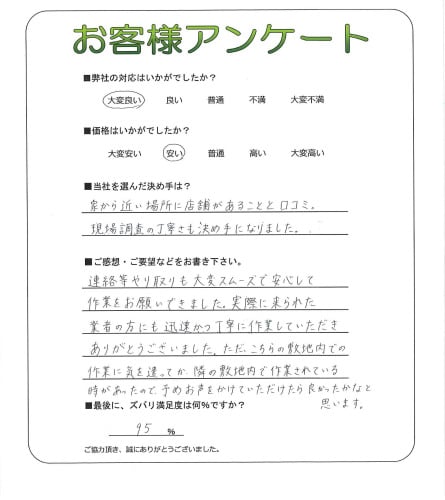 お客様アンケート
■弊社の対応はいかがでしたか?
大変良い 良い 普通 不満 大変不満
■価格はいかがでしたか?
大変安い 安い 普通 高い 大変高い
■当社を選んだ決め手は?
家から近い場所に店舗があることと口コミ。
現場調査の丁寧さも決め手になりました。
■ご感想・ご要望などをお書き下さい。
連絡等やり取りも大変スムーズで安心して
作業をお願いできました。実際に来られた
業者の方にも迅速かつ丁寧に作業していただき
ありがとうございました。ただ、こちらの敷地内での
作業に気を遣ってか、隣の敷地内で作業されている
時があったので、予めお声をかけていただけたら良かったかなと
思います。
■最後に、ズバリ満足度は何%ですか?
95 %
ご協力頂き、誠にありがとうございました。